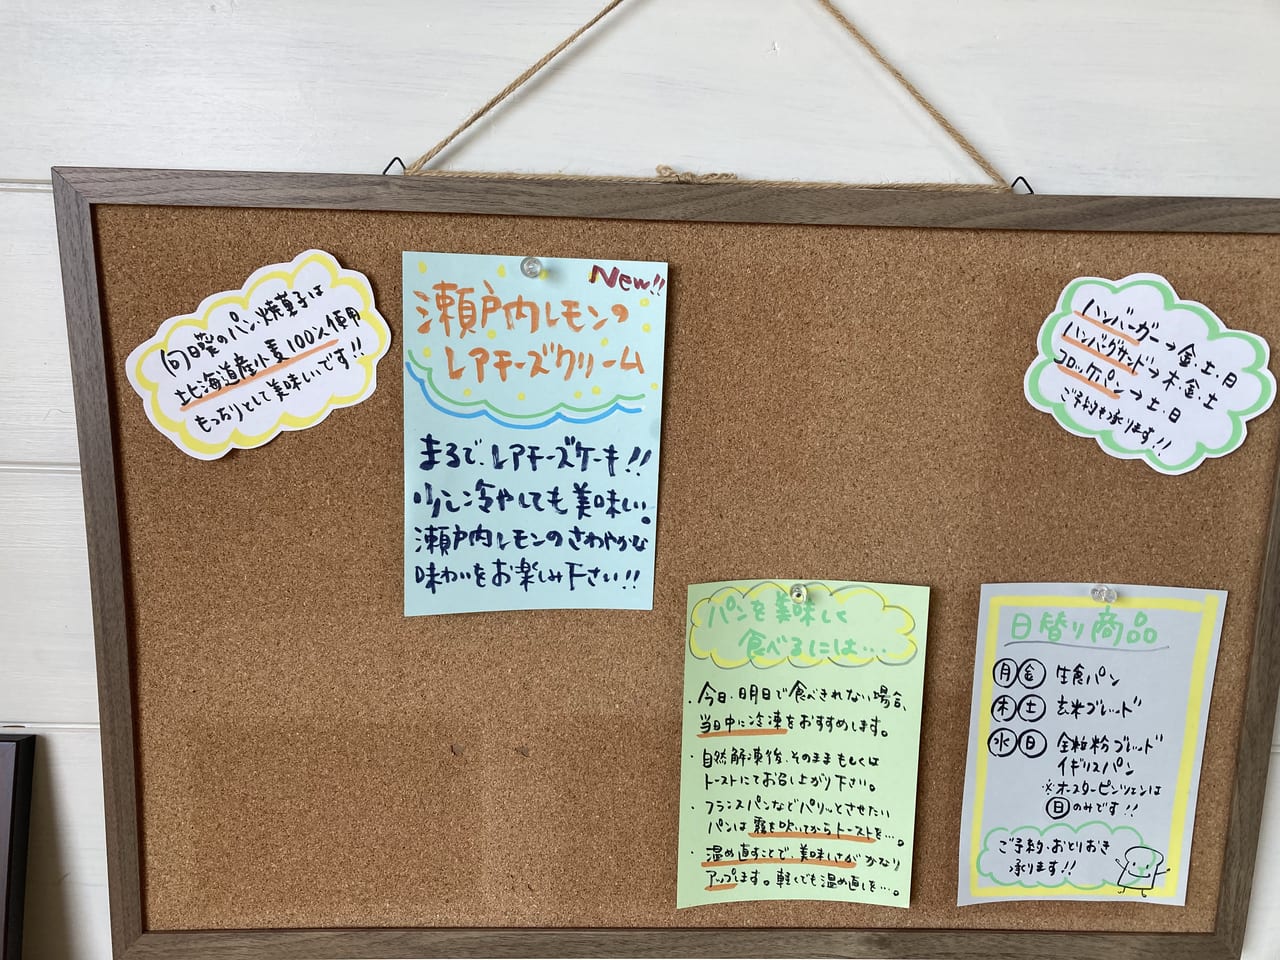 向日葵のパン・焼菓子は
北海道産小麦100%使用
もっちりとして美味しいです!!
New!!
瀬戸内レモンの
レアチーズクリーム
まるで、レアチーズケーキ!!
少し冷やしても美味しい。
瀬戸内レモンのさわやかな
味わいをお楽しみ下さい!!
ハンバーガー→金・土・日
ハンバーグサンド→木・金・土
コロッケパン→土・日
ご予約も承ります!!
パンを美味しく
食べるには…
・今日・明日で食べきれない場合、
当日中に冷凍をおすすめします。
・自然解凍後、そのままもしくは
トーストにてお召し上がり下さい。
・フランスパンなどパリッとさせたい
パンは霧を吹いてからトーストを…。
・温め直すことで、美味しさがかなり
アップします。軽くでも温め直しを…。
日替り商品
月 金 生食パン
木 土 玄米ブレッド
水 日 全粒粉ブレッド
イギリスパン
※オースターピンツェンは
日のみです!!
ご予約・おとりおき
承ります!!